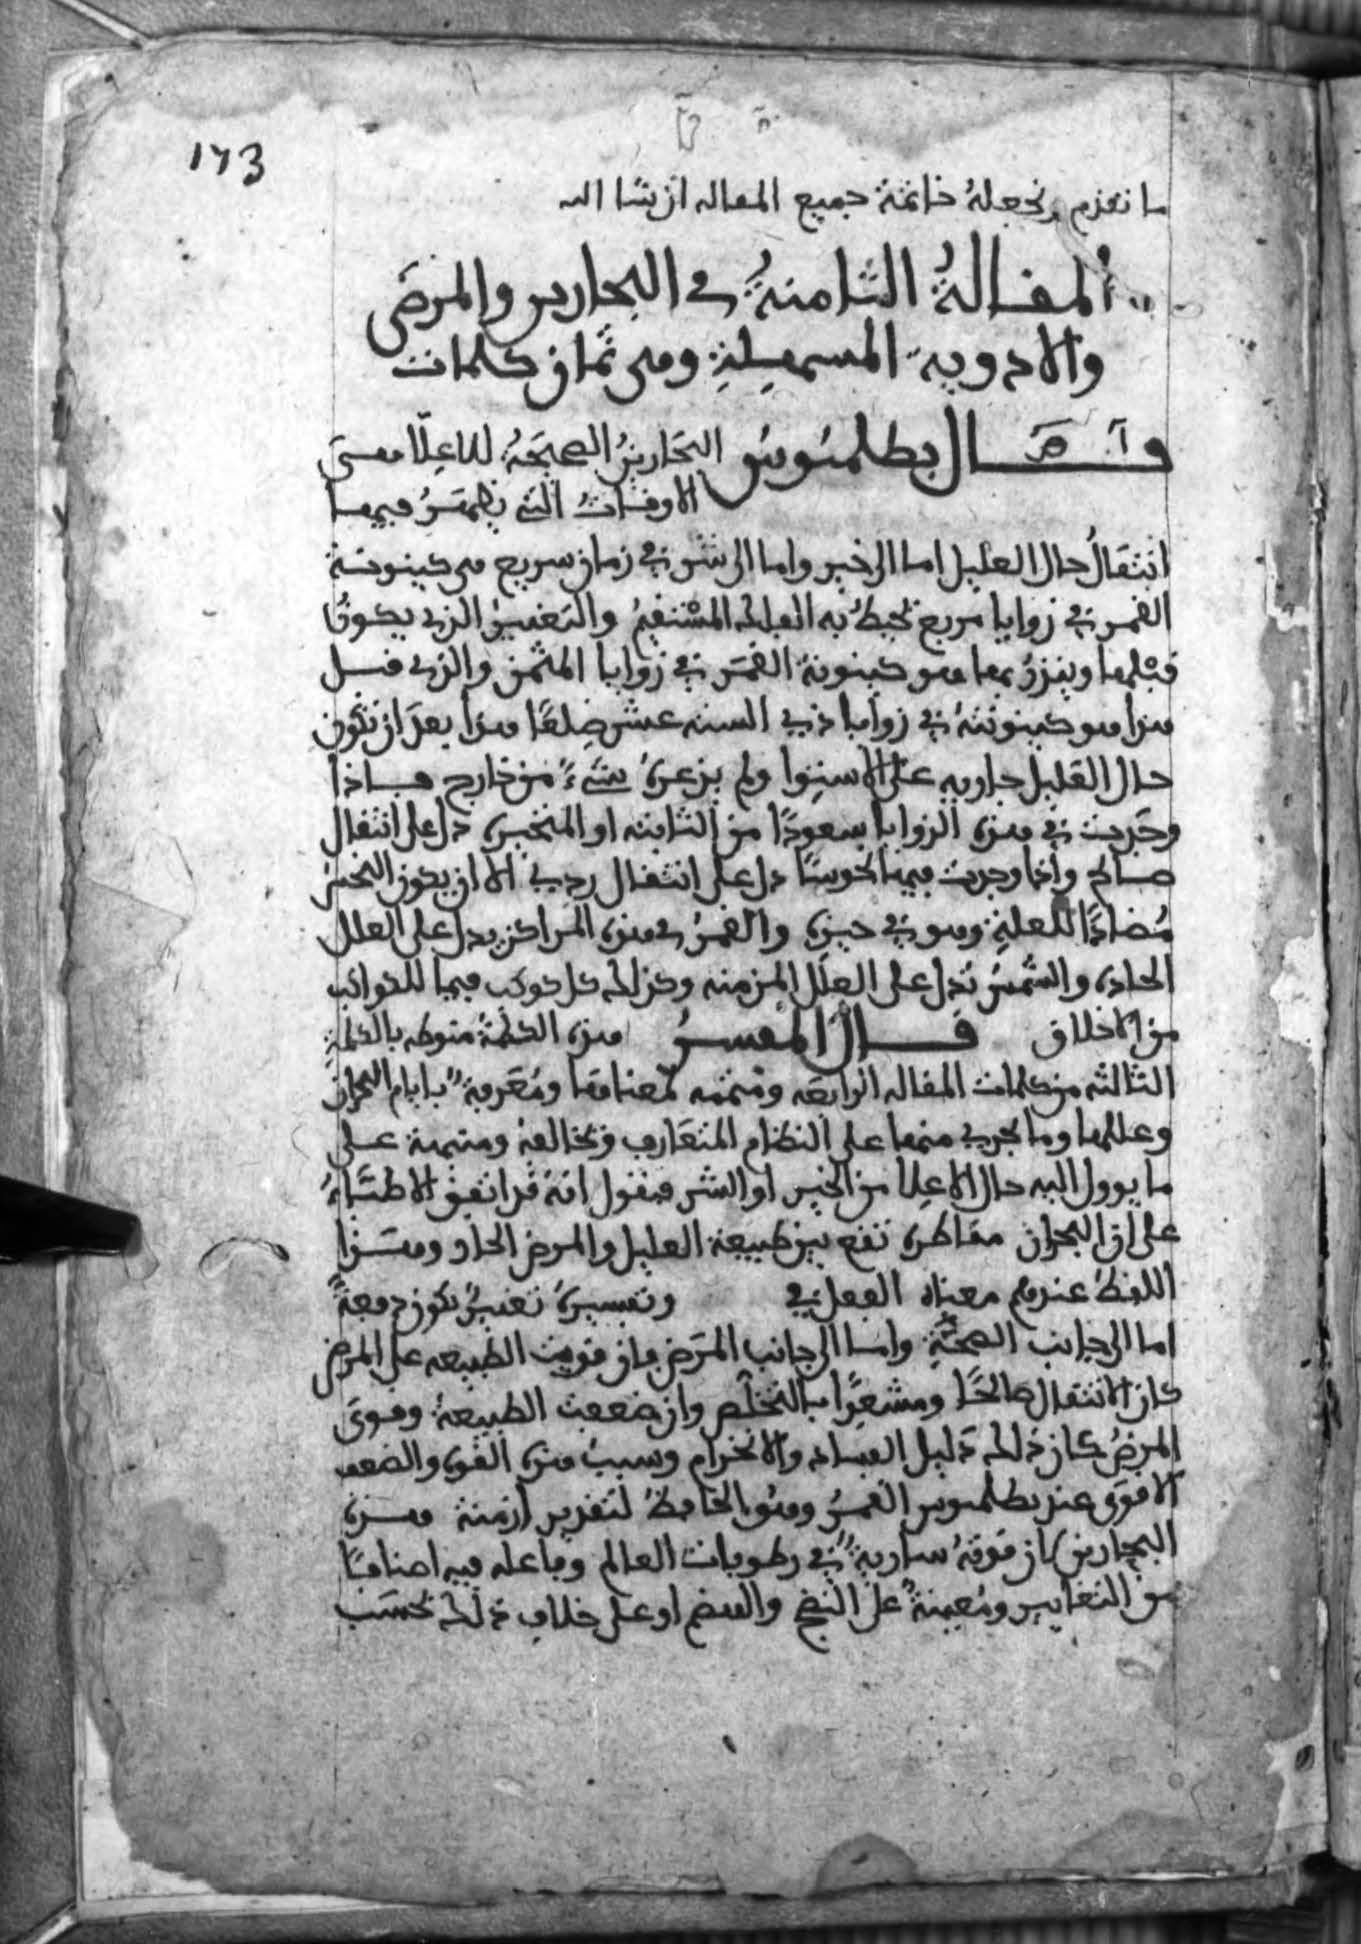 ١٦٣
ما تقدم ونجعله خاتمة جميع المقاله ان شا الله
المقالة الثامنة في البحارين والمرض
والادوية المسهلة وهي ثمان كلمات
قال بطلميوس البحارين الصحيحة للاعلا هي
الاوقات التي يلتمس فيها
انتقال حال العليل اما الى خير واما الى شر في زمان سريع هي كينونة
القمر في زوايا مربع يحيط به الفلك المستقيم والتغيير الذي يكون
قبلها وينذر بها هو كينونة القمر في زوايا المثمن والذي قبل
هذا هو كينونته في زوايا ذي الستة عشر ضلعا هذا بعد ان تكون
حال العليل جاريه على الاستوا ولم يزعره شيء من خارج فاذا
وجدت في هذه الزوايا سعودا من الثابته او المتحيره دل على انتقال
صالح واذا وجدت فيها نحوسا دل على انتقال ردي الا ان يكون النحس
مضادا للعلة وهو في حيزه والقمر في هذه المراكز يدل على العلل
الحاده والشمس تدل على العلل المزمنه وكذلك كل كوكب فيها للكواكب
من الاخلاق قال المفسر هذه الكلمة منوطه بالكلمة
الثالثه من كلمات المقاله الرابعه ومتممه لمعناها ومعرفة بايام البحران
وعللها وما يجري منها على النظام المتعارف ويخالفه ومنبهة على
ما يوول اليه حال الاعلا من الخير او الشر فنقول انه قد اتفق الاطباء
على ان البحران مناظره تقع بين طبيعة العليل والمرض الحاد وهذا
اللفظ عندهم معناه الفصل في وتفسيره تغيير يكون دفعة
اما الى جانب الصحة واما الى جانب المرض فان قويت الطبيعه على المرض
كان الانتقال صالحا ومشعرا بالتخلص وان ضعفت الطبيعة وقوى
المرض كان ذلك دليل الفساد والانخرام وسبب هذه القوى والضعف
الاقوى عند بطلميوس القمر وهو الحافظ لتقدير ازمنة هذه
البحارين لان قوته سارية في رطوبات العالم وفاعله فيه اصنافا
من التغايير ومعينة على النضج والهضم او على خلاف ذلك بحسب